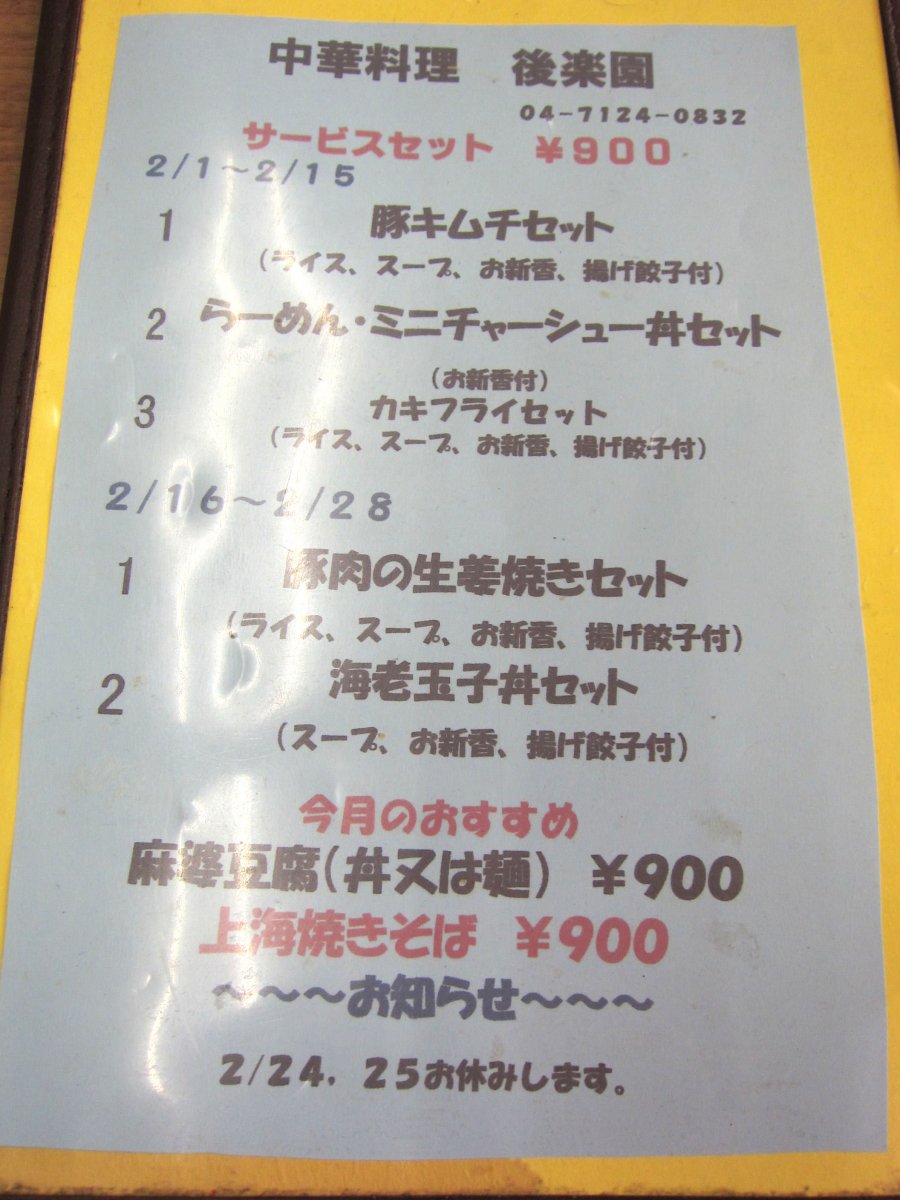 中華料理　後楽園
04-7124-0832
サービスセット　￥900
2/1～2/15
1　豚キムチセット
(ライス、スープ、お新香、揚げ餃子付)
2　らーめん・ミニチャーシュー丼セット
(お新香付)
3　カキフライセット
(ライス、スープ、お新香、揚げ餃子付)
2/16～2/28
1　豚肉の生姜焼きセット
(ライス、スープ、お新香、揚げ餃子付)
2　海老玉子丼セット
(スープ、お新香、揚げ餃子付)
今月のおすすめ
麻婆豆腐(丼又は麺)　￥900
上海焼きそば　￥900
～～～お知らせ～～～
2/24，25お休みします。